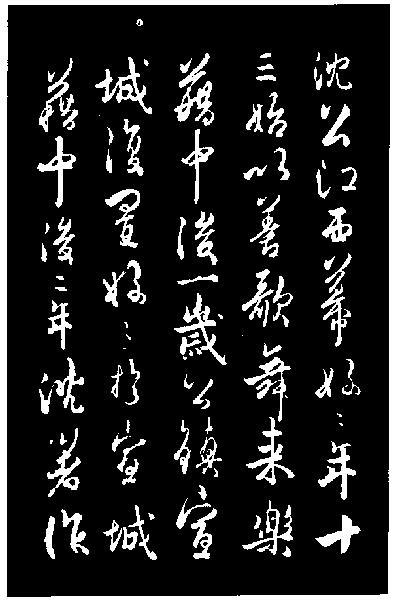 沈公江西幕好〻年十
三始以善歌舞来樂
籍中後一歲公鎮宣
城復置好〻於宣城
籍中後二年沈著作